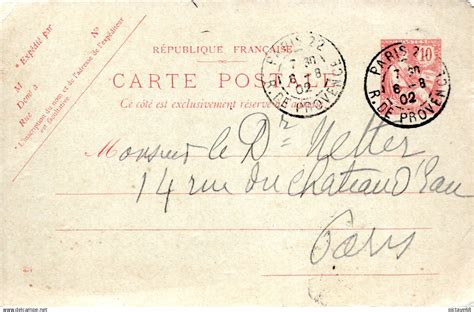 * Expédié par
N°
M
Dem t à
Rue
* L'inscription du nom et de l'adresse de l'expéditeur
est facultative.
RÉPUBLIQUE FRANÇAISE
CARTE POSTALE
Ce côté est exclusivement réservé à
PARIS 22
7 30
8 - 8
02
R. DE PROVENCE
PARIS 22
7 30
8 - 8
02
R. DE PROVENCE
10
Monsieur le Dr Netter
14 rue du Chateau d'Eau
Paris
delcampe.net
sistave68